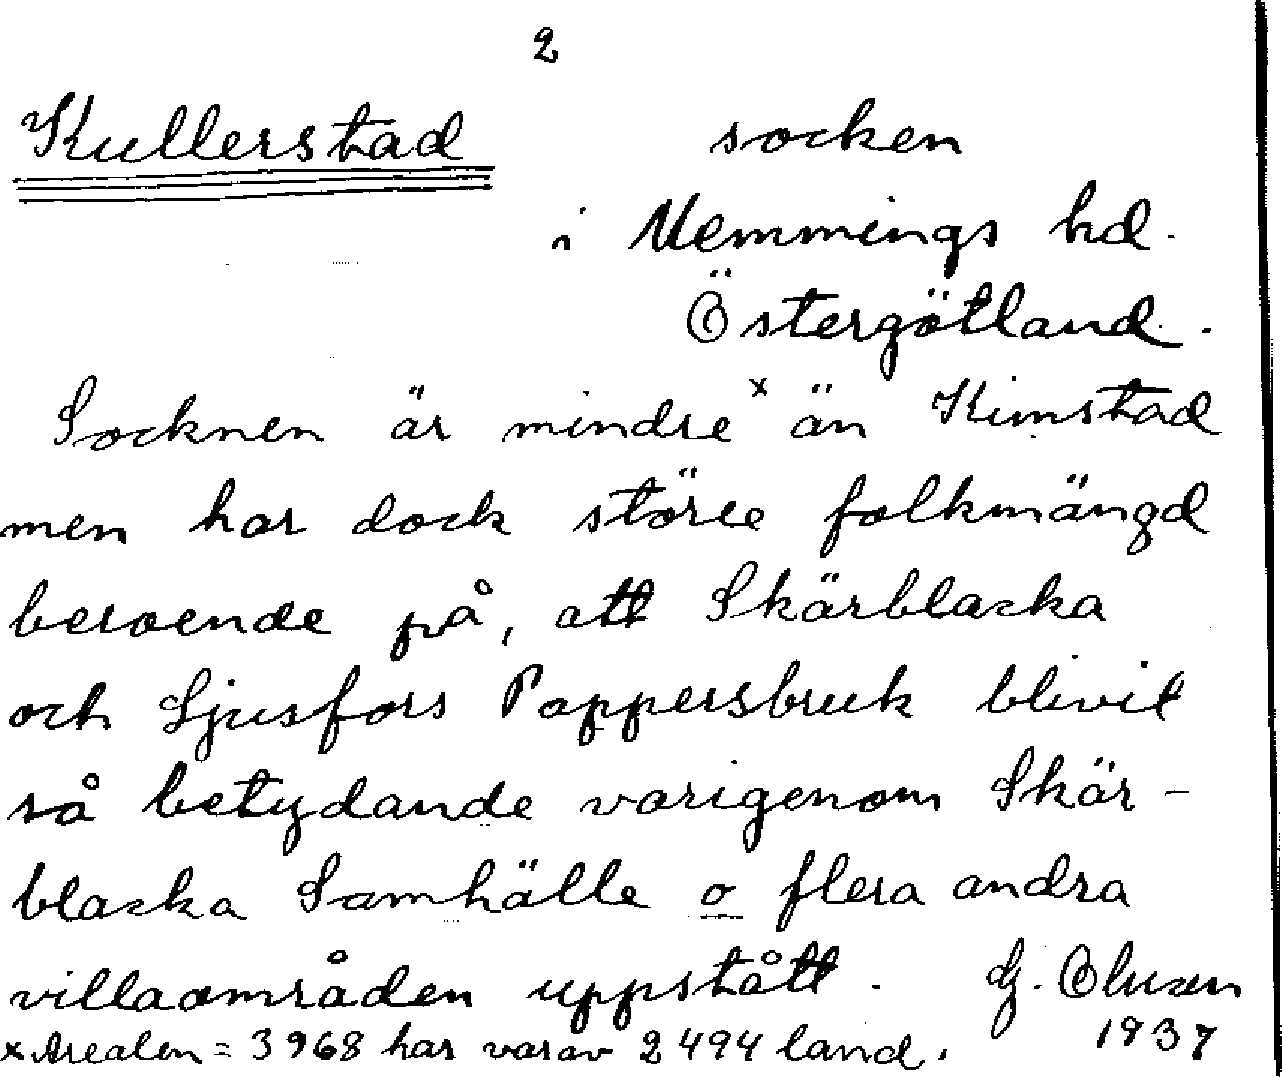 2
Kullerstad socken
i Memmings hd.
Östergötland.
Socknen är mindre x än Kimstad
men har dock större folkmängd
beroende på, att Skärblacka
och Ljusfors Pappersbruk blivit
så betydande varigenom Skär-
blacka Samhälle o flera andra
villaområden uppstått. G.
1937
x Arealen = 3968 har varav 2494 land.